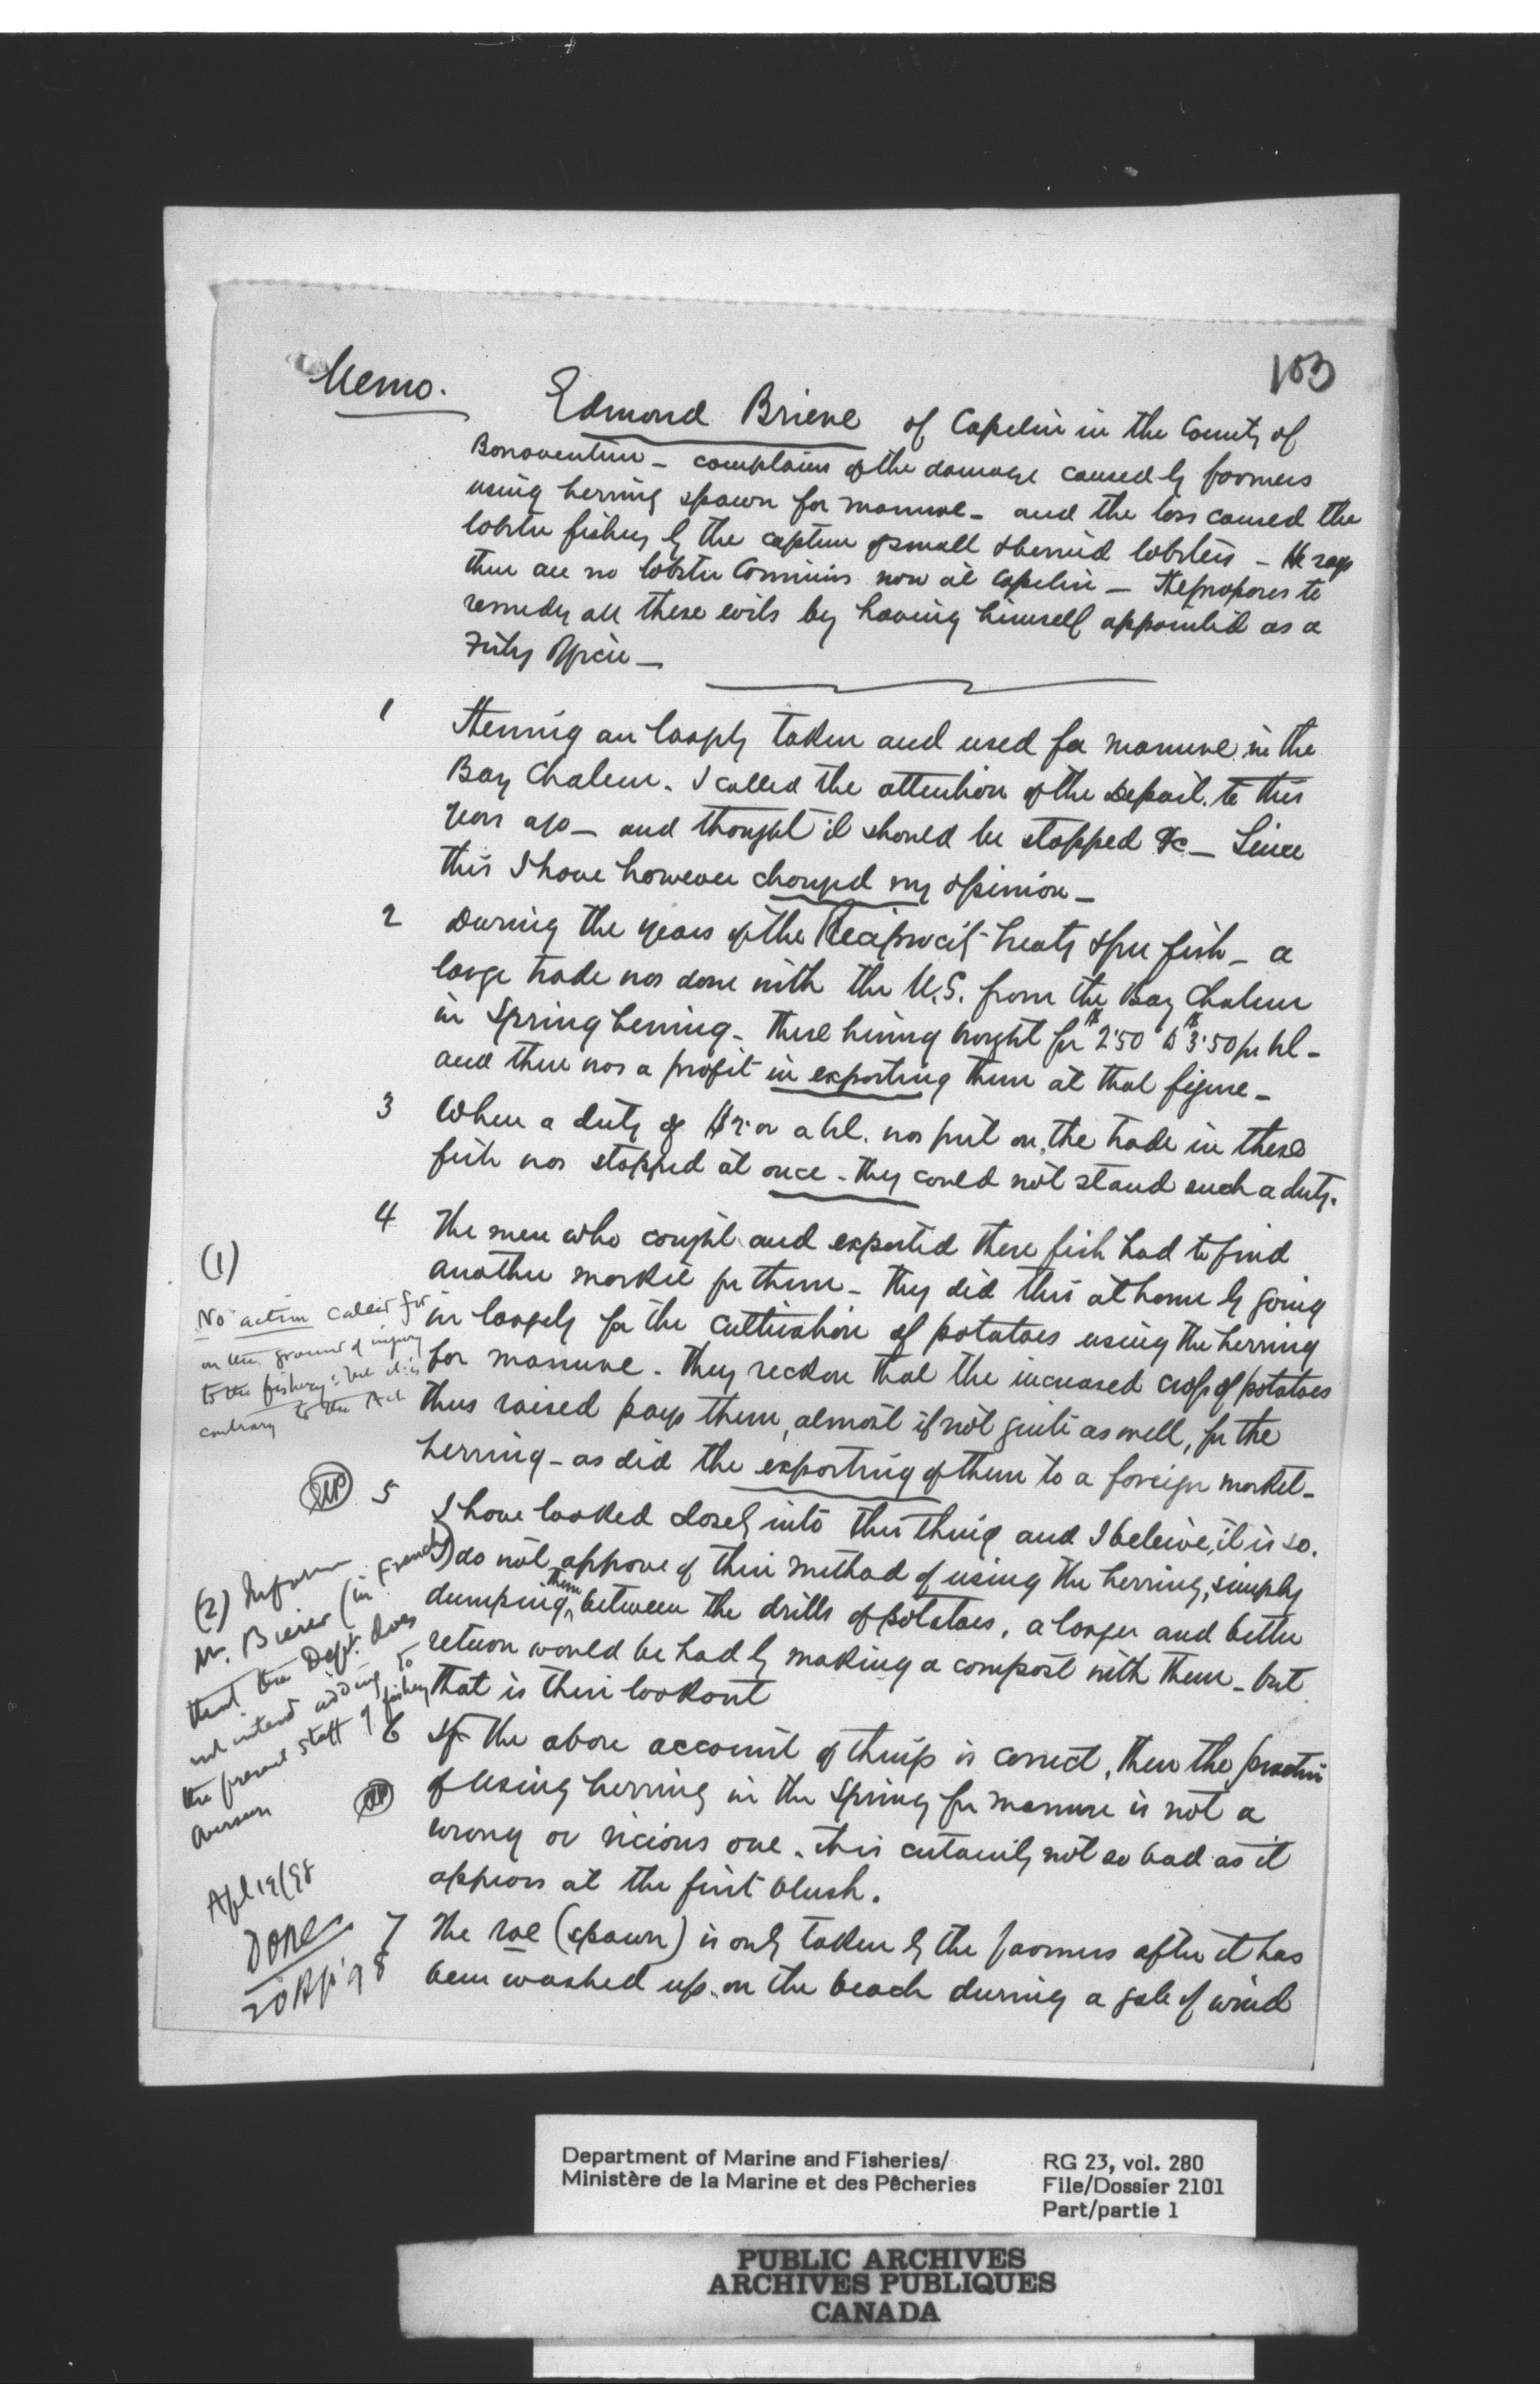 103
Memo.
Edmond Briere of Capelin in the County of
Bonaventure - complains of the damage caused by farmers
using herring spawn for manure - and the loss caused the
lobster fishery by the capture of small & berried lobsters - He says
there are no lobster Canneries now at Capelin - He proposes to
remedy all these evils by having himself appointed as a
Fishy Officer -
1 Herring are largely taken and used for manure in the
Bay Chaleur. I called the attention of the Depart. to this
years ago - and thought it should be stopped &c - Since
this I have however changed my opinion -
2 During the years of the Reciprocity treaty & free fish - a
large trade was done with the U.S. from the Bay Chaleur
in Spring herring - These herring brought fr $2.50 to $3.50 pr bl -
and there was a profit in exporting them at that figure -
3 When a duty of a bl. was put on, the trade in these
fish was stopped at once - they could not stand such a duty.
4 The men who caught and exported these fish had to find
another market for them - They did this at home by going
in largely for the cultivation of potatoes using the herring
for manure. They reckon that the increased crop of potatoes
thus raised pays them, almost if not quite as well, for the
herring - as did the exporting of them to a foreign market -
5 I have looked closely into this thing and I beleive, it is so.
I do not approve of their method of using the herring, simply
dumping them between the drills of potatoes, a larger and better
return would be had by making a compost with them - but
that is their lookout
6 If the above account of things is correct, then the practice
of using herring in the Spring for manure is not a
wrong or vicious one. It is certainly not so bad as it
appears at the first blush.
7 The roe (spawn) is only taken by the farmers after it has
been washed up on the beach during a gale of wind
(1)
No action called for
on the ground of injury
to the fishery: but it is
contrary to the Act
(2) Inform
Mr. Brier (in French)
that the Dept. does
not intend adding to
the present staff of fishery
Overseers
Apl 19/98
Done
20 Ap' 98
Department of Marine and Fisheries/
Ministère de la Marine et des Pêcheries
RG 23, vol. 280
File/Dossier 2101
Part/partie 1
PUBLIC ARCHIVES
ARCHIVES PUBLIQUES
CANADA